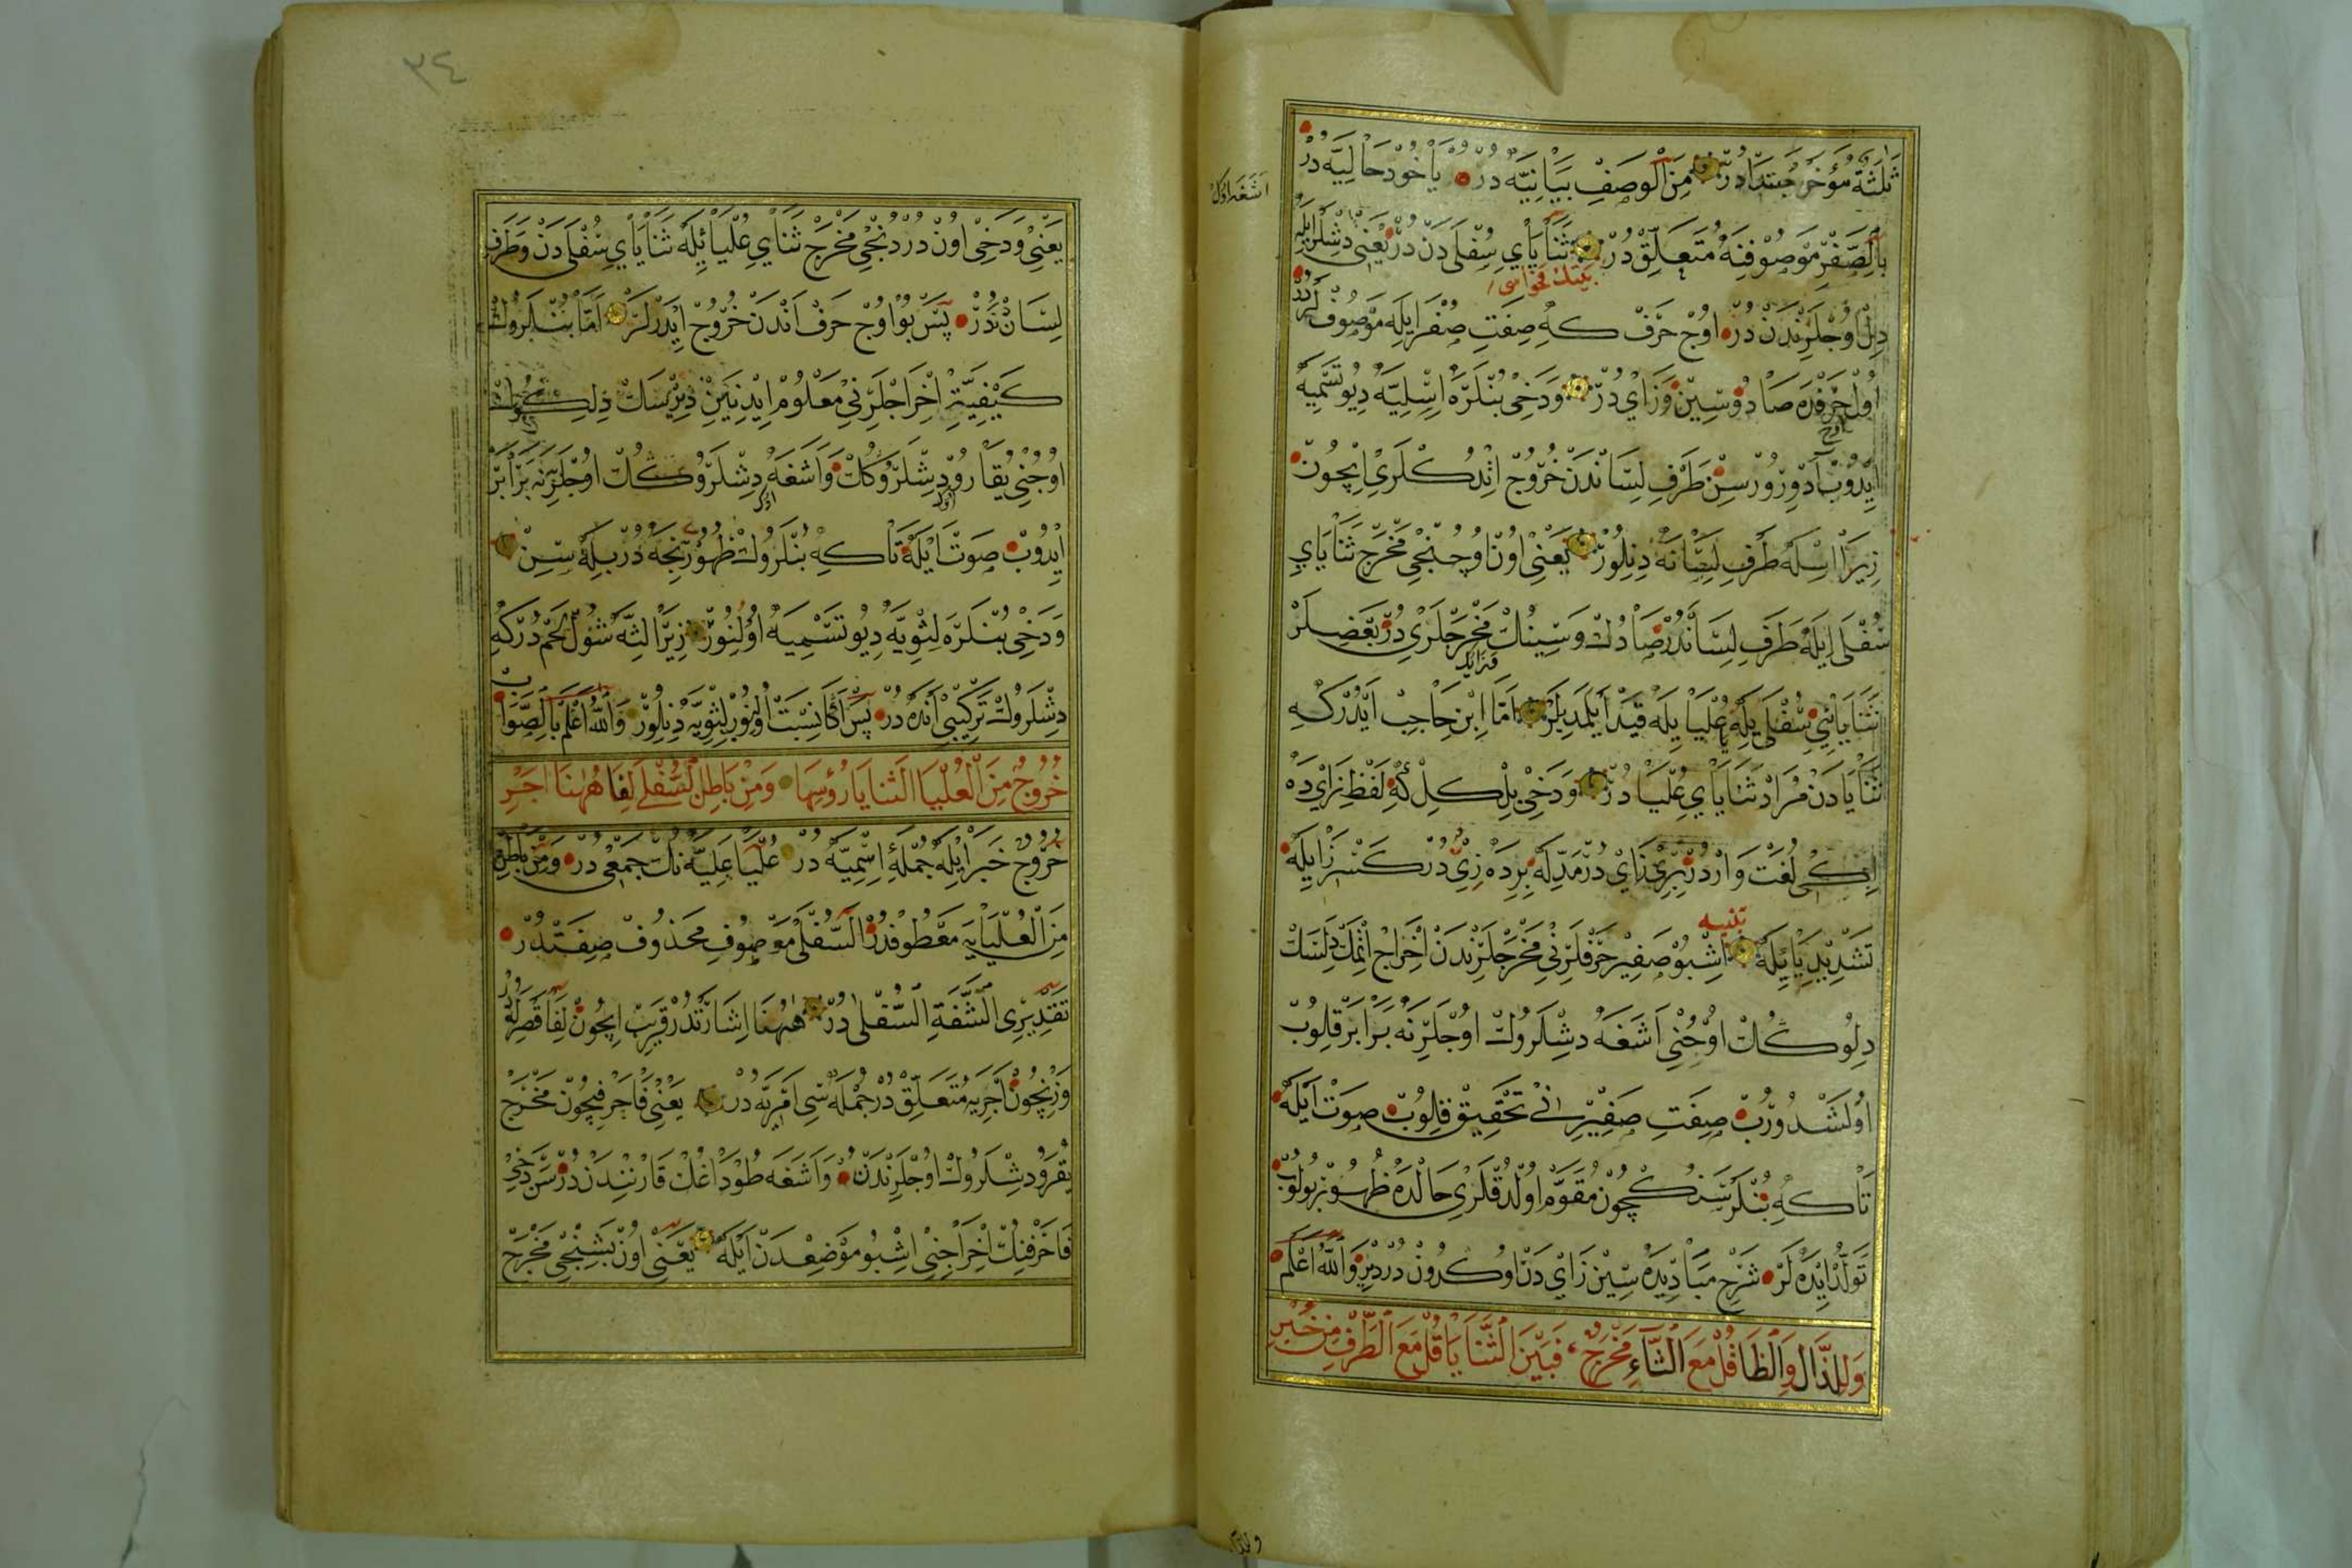 ثَلٰثَةٌ مُؤَخَّرْ مُبْتَدَادُرْ مِنَ الْوَصْفِ بَيَانِيَّه دُرْ يَاخُودْ حَالِيَّه دُرْ
اشغه اول
بِالصَّفْرِ مَوْصُوفِنَه مُتَعَلِّقْ دُرْ ثَنَايَايِ سُفْلَى دَنْ دُرْ يَعْنِى دِشْلَرْ ايله
بيتك فحواسى
دِلْ اُوجْلَرِنْدَنْ دُرْ اُوجْ حَرْفْ كه صِفَتِ صُفْرَ ايله مَوْصُوفْلَرْ دُرْ
اُولْ حَرْفْلَرْ صَادُ و سِينْ و زَاىْ دُرْ وَدَخِى بُنْلَرَه اَسَلِيَّه دِيُو تَسْمِيَه
اوج
اِيدُوبْ طَرَفِ لِسَانْدَنْ خُرُوجْ اِتْدُكْلَرِى اِيچُونْ
زِيرَا اَسَلَه طَرَفِ لِسَانَه دِنِلُورْ يَعْنِى اُونْ اُوچُنْجِى مَخْرَجْ ثَنَايَايِ
سُفْلَى اِيلَه طَرَفِ لِسَانْدُرْ صَادُكْ و سِينُكْ مَخْرَجْلَرِى دُرْ بَعْضِلَرْ
وزايك
ثَنَايَايِى سُفْلَى يِلَه عُلْيَا يِلَه قَيْدْ اَيْلَمَدِيلَرْ اَمَّا اِبْنِ حَاجِبْ اَيْدُرْكه
ثَنَايَادَنْ مُرَادْ ثَنَايَايِ عُلْيَا دُرْ وَدَخِى بِلْ كِلْ كه لَفْظِ زَاىْ دَه
اِيكِى لُغَتْ وَارْدُرْ بِرِى زَاىْ دُرْ مَدِّلَه بِرِدَه زِىّ دُرْ كَسْرِ زَا يِلَه
تنبيه
تَشْدِيدِ يَا يِلَه اِشْبُو صَفِيرْ حَرْفْلَرِنِى مَخْرَجْلَرِنْدَنْ اِخْرَاجْ اِتْمَكْ دِلَسَكْ
دِلُوكُكْ اُوجُنِى اَشَغَه دِشْلَرُوكْ اُوجْلَرِنَه بَرَابَرْ قِلُوبْ
اُولَشْدُورُبْ صِفَتِ صَفِيرِى نِى تَحْقِيقْ قِلُوبْ صَوْتْ اَيْلَه
تَا كه بُنْلَرْ سَنُكْچُونْ مُقَوَّمْ اُولْدُقْلَرِى حَالْدَه ظُهُورْ بُولُوبْ
تَوَلُّدْ اِيدَه لَرْ شَرْحِ مَبَادِيدَه سِينْ زَاىْ دَنْ اُوكْدُونْ دُرْ دِيرْ وَاللهُ اَعْلَمُ
وَلِلذَّالِ وَالظَّا قُلْ مَعَ الثَّاءِ مَخْرَجٌ فَبَيْنَ الثَّنَايَا قُلْ مَعَ الطَّرْفِ مِنْ خُبْرِ
٣٤
يَعْنِى وَدَخِى اُونْ دُرْدُنْجِى مَخْرَجْ ثَنَايِ عُلْيَا يِلَه ثَنَايَايِ سُفْلَى دَنْ وَطَرَفِ
لِسَانْدُرْ پَسْ بُو اُوجْ حَرْفْ اَنْدَنْ خُرُوجْ اِيدَرْلَرْ اَمَّا بُنْلَرُوكْ
كَيْفِيَّتِ اِخْرَاجْلَرِنِى مَعْلُومْ اِيدِنَيِنْ دِيرْسَكْ
اُوجُنِى يُقَارُو دِشْلَرُوكُكْ وَاَشَغَه دِشْلَرُوكُكْ اُوجْلَرِنَه بَرَابَرْ
اِيدُوبْ صَوْتْ اَيْلَه تَا كه بُنْلَرُوكْ ظُهُورِ نِجَه دُرْ بِلَه سِنْ
وَدَخِى بُنْلَرَه لِثَوِيَّه دِيُو تَسْمِيَه اُولِنُورْ زِيرَا لِثَه شُولْ لَحَمْ دُرْ كه
دِشْلَرُوكْ تَرْكِيبِى اَنْدَه دُرْ پَسْ اَكَا نِسْبَتْ اُولِنُورْ لِثَوِيَّه دِنِلُورْ وَاللهُ اَعْلَمُ بِالصَّوَابْ
خُرُوجٌ مِنَ الْعُلْيَا الثَّنَايَا رُؤُسِهَا وَمِنْ بَاطِنِ السُّفْلَى لِفَا هٰهُنَا اَجْرِ
خُرُوجْ خَبَرْ اِيلَه جُمْلَهٔ اِسْمِيَّه دُرْ عُلْيَا عَلِيَّه نُكْ جَمْعِى دُرْ وَمِنْ بَاطِنِ
مِنَ الْعُلْيَايَه مَعْطُوفْدُرْ السُّفْلَى مَوْصُوفِ مَحْذُوفْ صِفَتِدُرْ
تَقْدِيرِى الشَّفَةِ السُّفْلَى دُرْ هٰهُنَا اِشَارَتْدُرْ قَرِيبْ اِيچُونْ لِفَا قَصْرِلَه دُرْ
وَزْنِچُونْ اَجْرِيَه مُتَعَلِّقْ دُرْ جُمْلَه سِى اَمْرِيَّه دُرْ يَعْنِى فَا حَرْفِيچُونْ مَخْرَجْ
يُقَرُو دِشْلَرُوكْ اُوجْلَرِنْدَنْ وَاَشَغَه طُودَاغُكْ قَارْنِنْدَنْ دُرْ سَنْ دَخِى
فَا حَرْفِنُكْ اِخْرَاجِنِى اِشْبُو مَوْضِعْدَنْ اَيْلَه يَعْنِى اُونْ بَشِنْجِى مَخْرَجْ